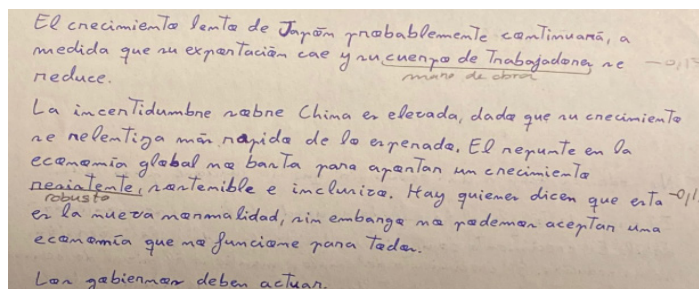 El crecimiento lento de Japón probablemente continuará, a
medida que su exportación cae y su cuerpo de Trabajadores se -0,15
mano de obra
reduce.
La incertidumbre sobre China es elevada, dada que su crecimiento
se relentiza más rápido de lo esperado. El repunte en la
economía global no basta para aportar un crecimiento
resistente, sostenible e inclusivo. Hay quienes dicen que esta -0,15
robusto
es la nueva normalidad, sin embargo no podemos aceptar una
economía que no funcione para todos.
Los gobiernos deben actuar.